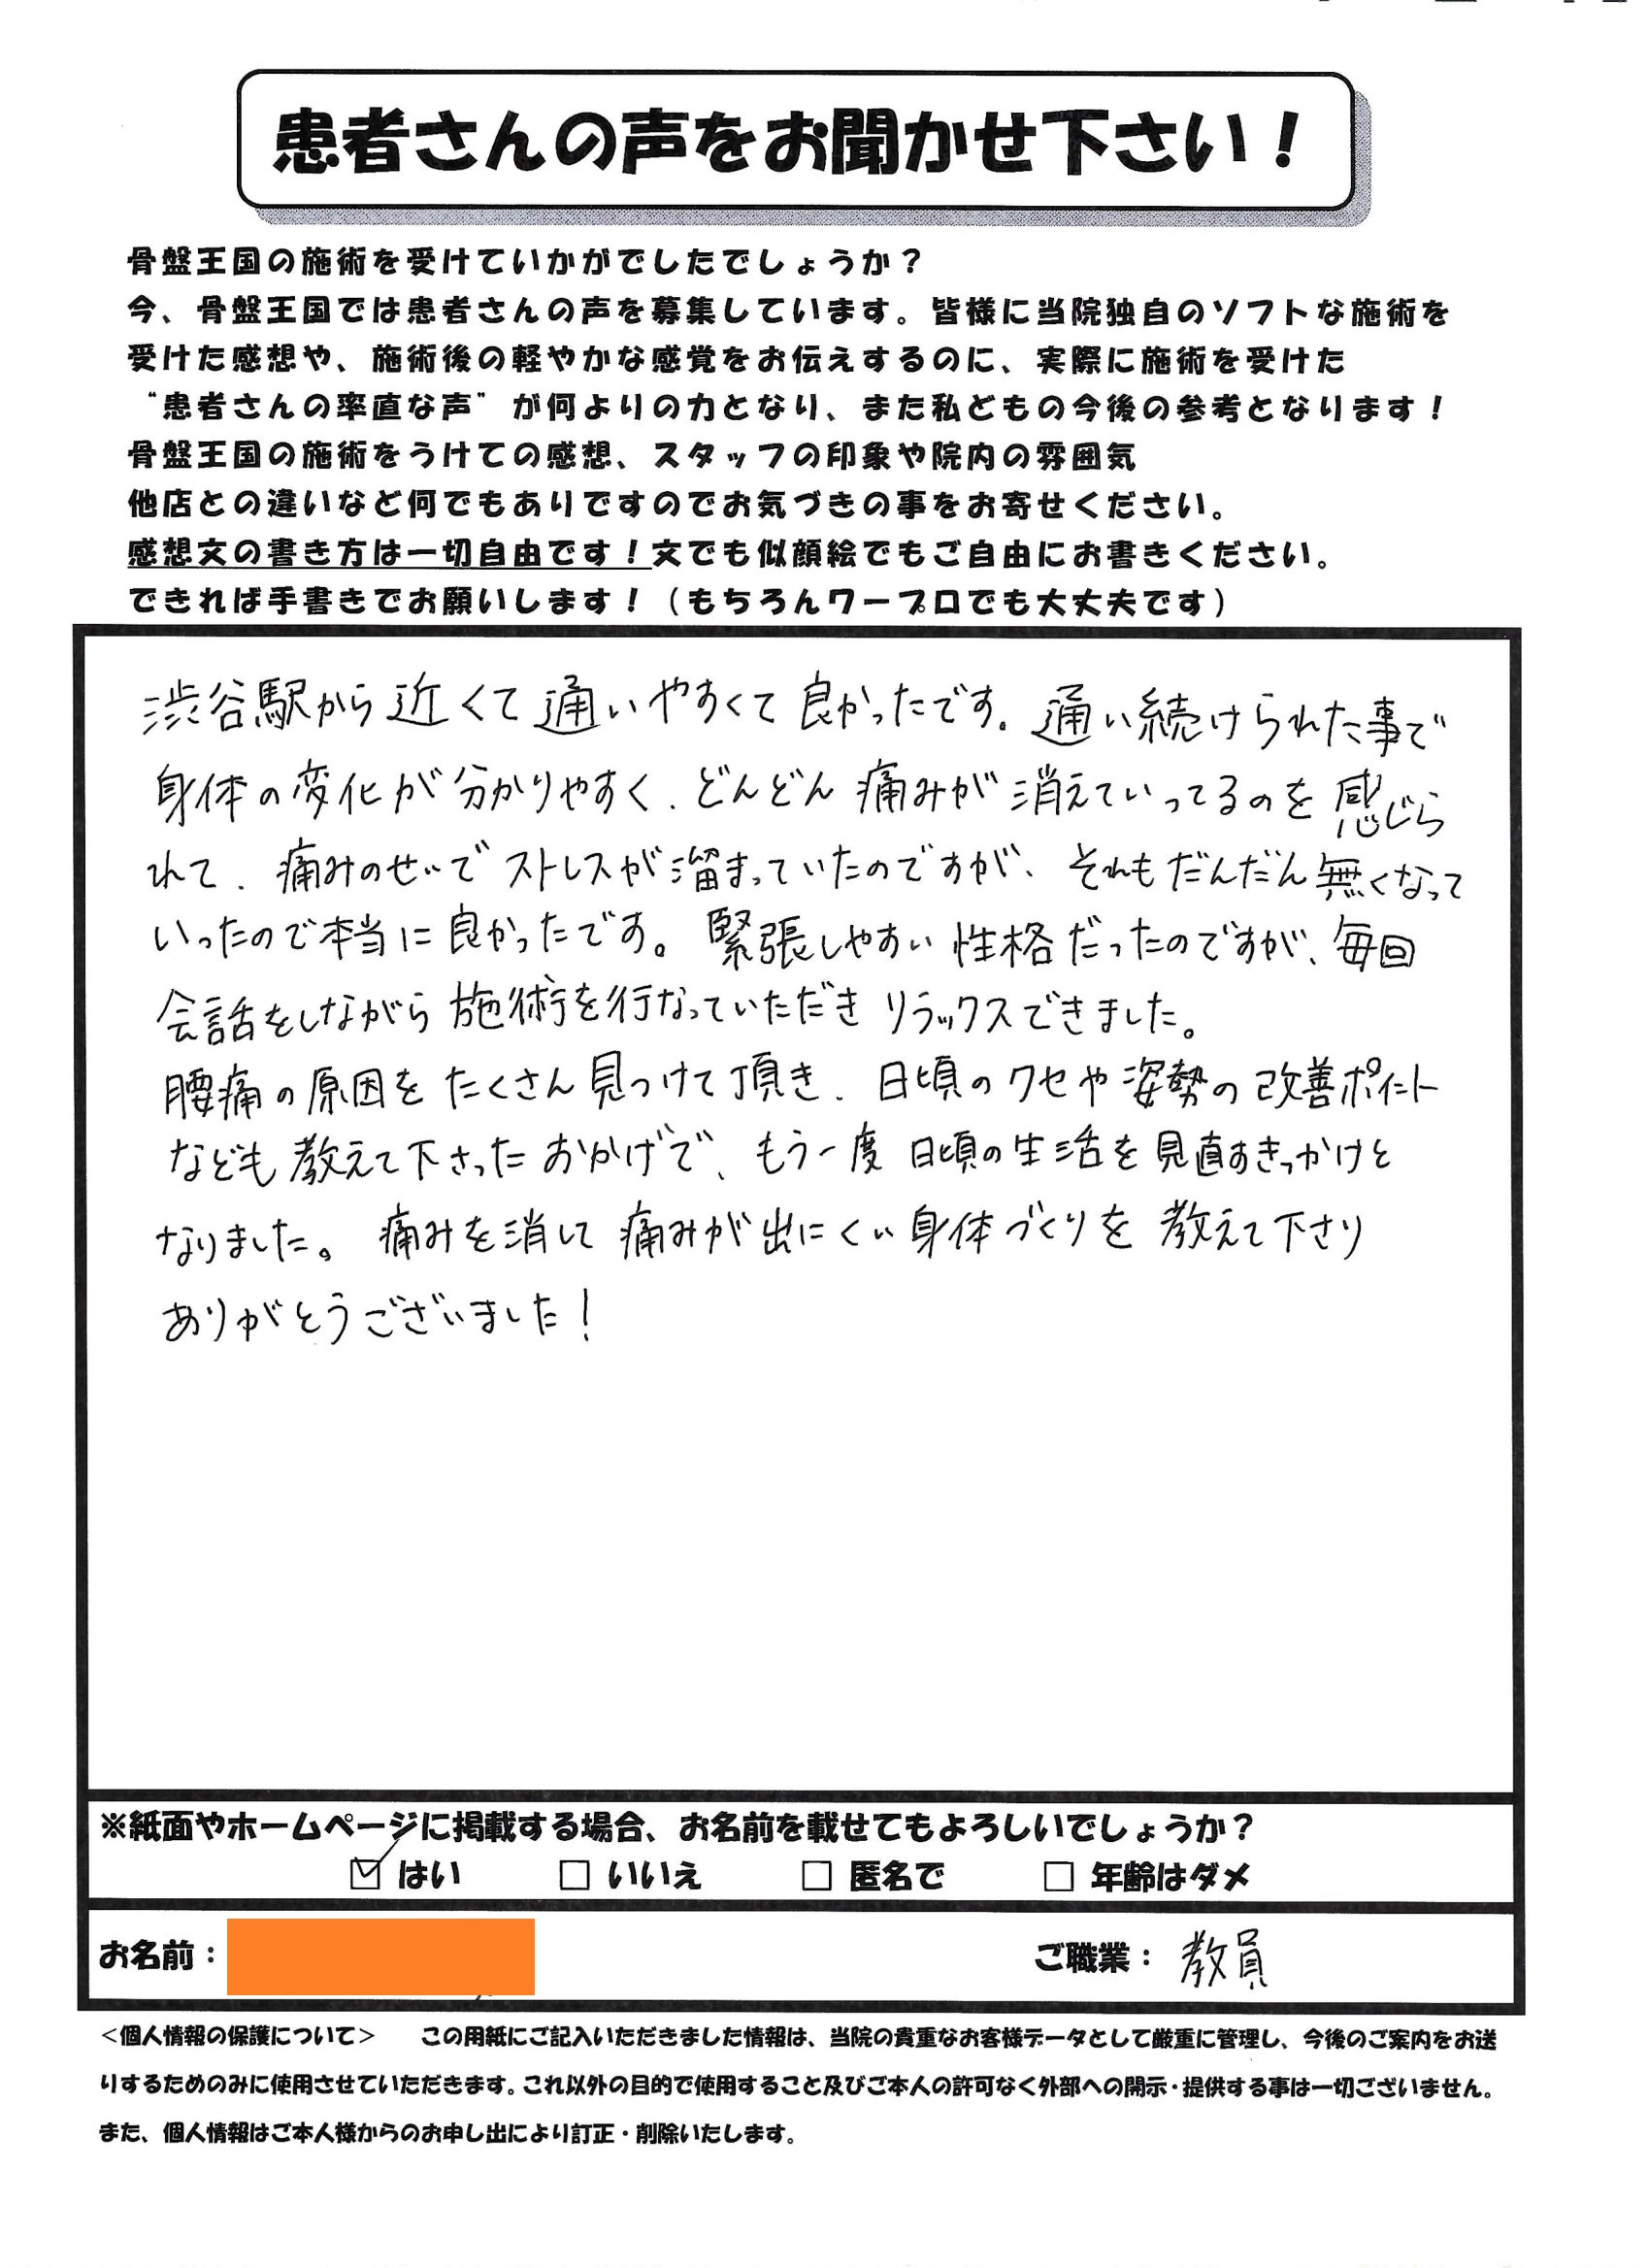 患者さんの声をお聞かせ下さい！
骨盤王国の施術を受けていかがでしたでしょうか？
今、骨盤王国では患者さんの声を募集しています。皆様に当院独自のソフトな施術を
受けた感想や、施術後の軽やかな感覚をお伝えするのに、実際に施術を受けた
“患者さんの率直な声”が何よりの力となり、また私どもの今後の参考となります！
骨盤王国の施術をうけての感想、スタッフの印象や院内の雰囲気
他店との違いなど何でもありですのでお気づきの事をお寄せください。
感想文の書き方は一切自由です！文でも似顔絵でもご自由にお書きください。
できれば手書きでお願いします！（もちろんワープロでも大丈夫です）
渋谷駅から近くて通いやすくて良かったです。通い続けられた事で
身体の変化が分かりやすく、どんどん痛みが消えていってるのを感じら
れて、痛みのせいでストレスが溜まっていたのですが、それもだんだん無くなって
いったので本当に良かったです。緊張しやすい性格だったのですが、毎回
会話をしながら施術を行なっていただきリラックスできました。
腰痛の原因をたくさん見つけて頂き、日頃のクセや姿勢の改善ポイント
なども教えて下さったおかげで、もう一度日頃の生活を見直すきっかけと
なりました。痛みを消して痛みが出にくい身体づくりを教えて下さり
ありがとうございました！
※紙面やホームページに掲載する場合、お名前を載せてもよろしいでしょうか？
☑ はい □ いいえ □ 匿名で □ 年齢はダメ
お名前： ご職業： 教員
＜個人情報の保護について＞ この用紙にご記入いただきました情報は、当院の貴重なお客様データとして厳重に管理し、今後のご案内をお送
りするためのみに使用させていただきます。これ以外の目的で使用すること及びご本人の許可なく外部への開示・提供する事は一切ございません。
また、個人情報はご本人様からのお申し出により訂正・削除いたします。